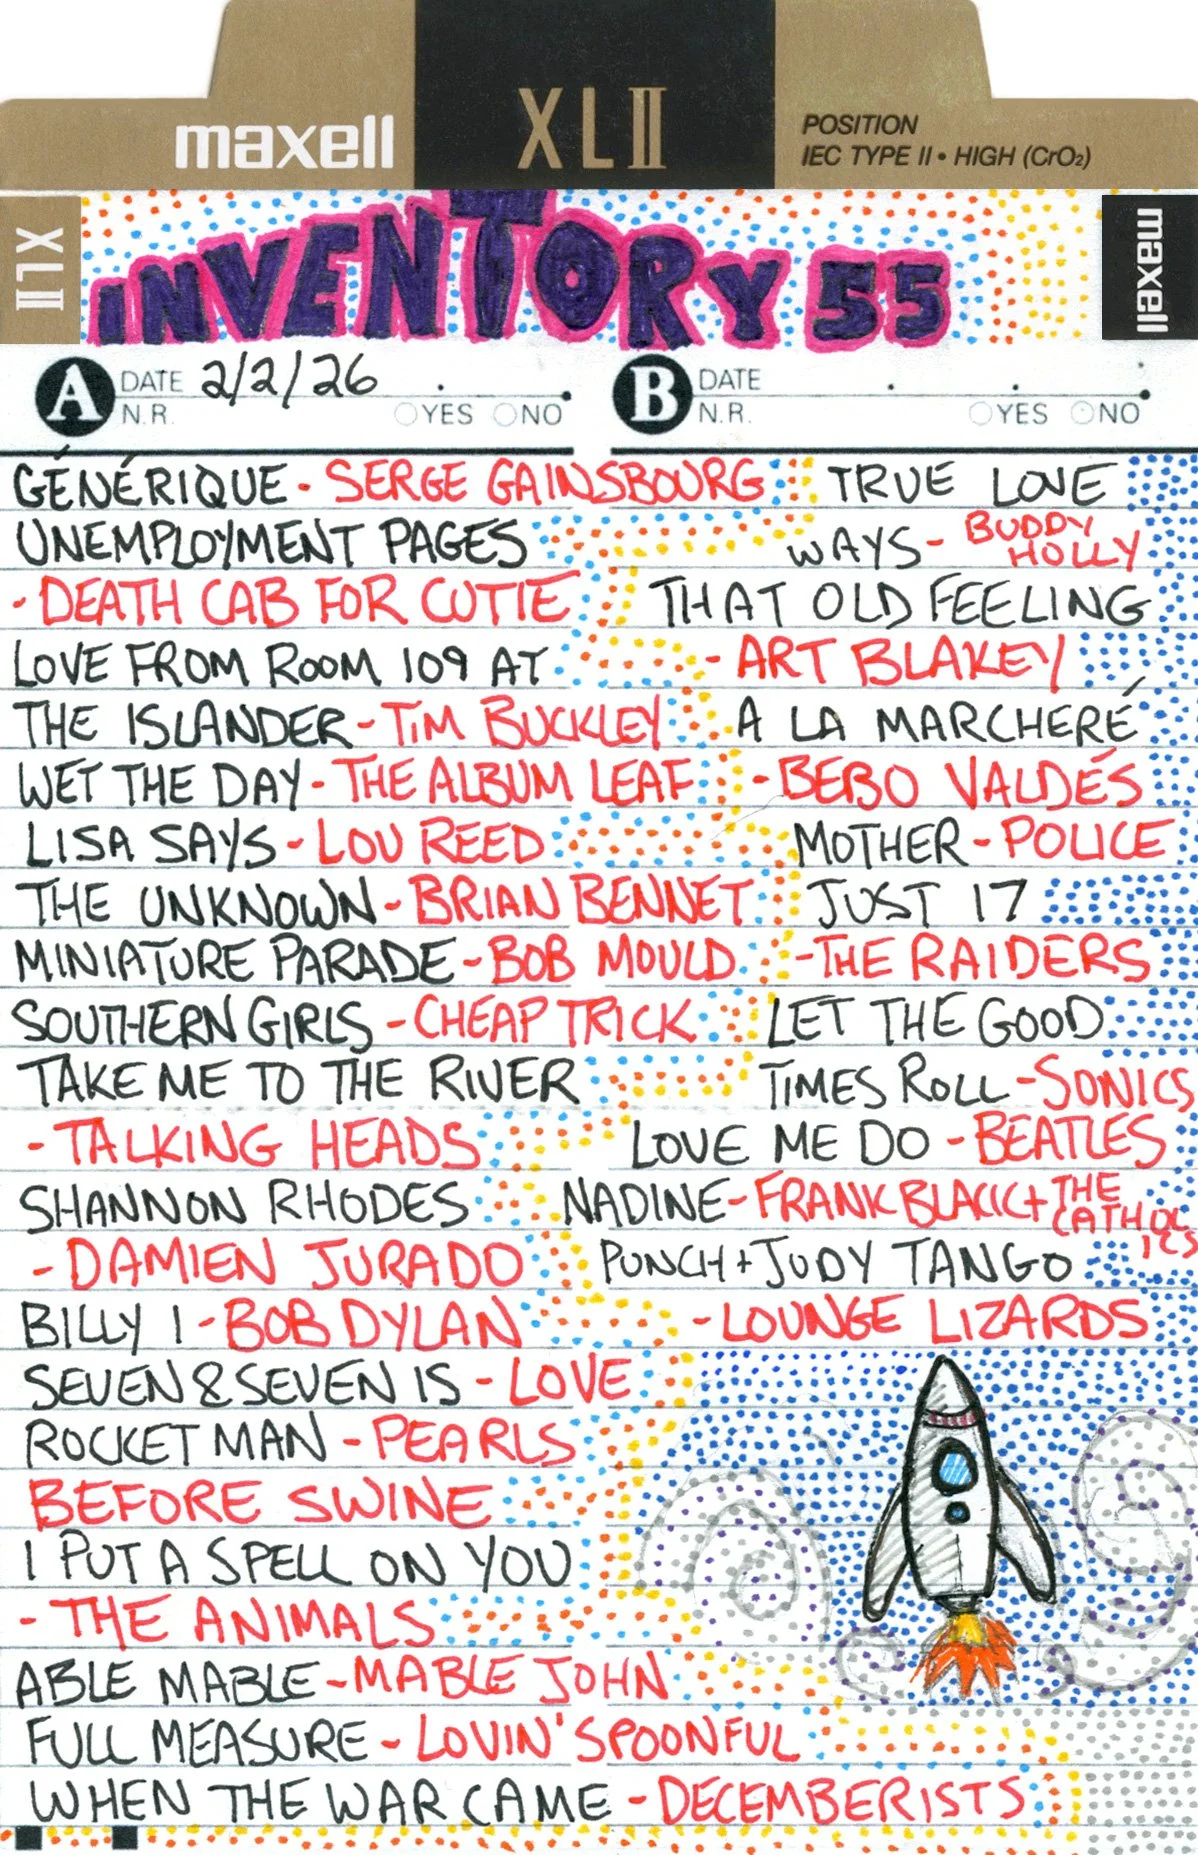 maxell
XLII
POSITION
IEC TYPE II • HIGH (CrO2)
XLII
INVENTORY 55
maxell
A DATE 2/2/26
N.R. YES NO
B DATE
N.R. YES NO
GÉNÉRIQUE - SERGE GAINSBOURG
UNEMPLOYMENT PAGES
- DEATH CAB FOR CUTIE
LOVE FROM ROOM 109 AT
THE ISLANDER - TIM BUCKLEY
WET THE DAY - THE ALBUM LEAF
LISA SAYS - LOU REED
THE UNKNOWN - BRIAN BENNET
MINIATURE PARADE - BOB MOULD
SOUTHERN GIRLS - CHEAP TRICK
TAKE ME TO THE RIVER
- TALKING HEADS
SHANNON RHODES
- DAMIEN JURADO
BILLY 1 - BOB DYLAN
SEVEN & SEVEN IS - LOVE
ROCKET MAN - PEARLS
BEFORE SWINE
I PUT A SPELL ON YOU
- THE ANIMALS
ABLE MABLE - MABLE JOHN
FULL MEASURE - LOVIN' SPOONFUL
WHEN THE WAR CAME - DECEMBERISTS
TRUE LOVE
WAYS - BUDDY
HOLLY
THAT OLD FEELING
- ART BLAKEY
A LA MARCHERÉ
- BEBO VALDÉS
MOTHER - POLICE
JUST 17
- THE RAIDERS
LET THE GOOD
TIMES ROLL - SONICS
LOVE ME DO - BEATLES
NADINE - FRANK BLACK + THE
CATHOL
ICS
PUNCH + JUDY TANGO
- LOUNGE LIZARDS